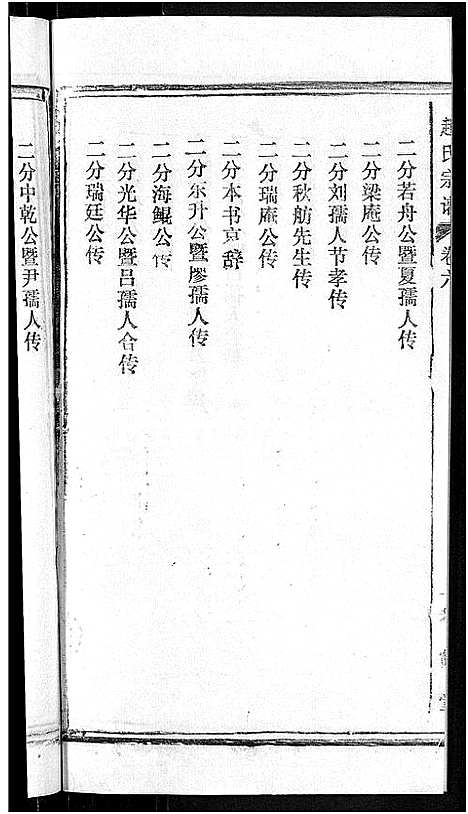 赵氏宗谱 卷六
二分若舟公暨夏孺人传
二分梁庵公传
二分刘孺人节孝传
二分秋舫先生传
二分瑞庵公传
二分本书哀辞
二分东升公暨廖孺人传
二分海鲲公传
二分光华公暨吕孺人合传
二分瑞廷公传
二分中乾公暨尹孺人传